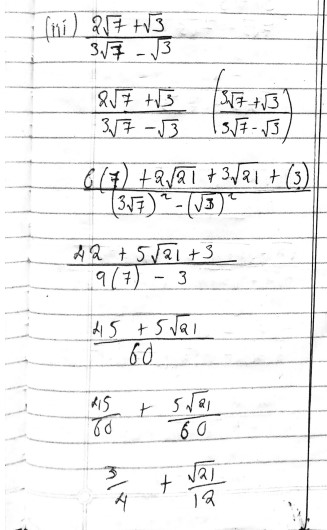 (iii) (2√7 + √3)/(3√7 - √3)
(2√7 + √3)/(3√7 - √3) ((3√7 + √3)/(3√7 - √3))
(6(7) + 2√21 + 3√21 + (3))/((3√7)² - (√3)²)
(42 + 5√21 + 3)/(9(7) - 3)
(45 + 5√21)/60
45/60 + 5√21/60
3/4 + √21/12